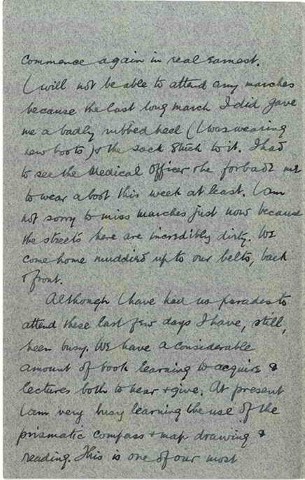 commence again in real earnest.
I will not be able to attend any marches
because the last long march I did gave
me a badly rubbed heel (I was wearing
new boots & the sock stuck to it. I had
to see the Medical Officer & he forbade me
to wear a boot this week at least. I am
not sorry to miss marches just now because
the streets here are incredibly dirty. We
come home muddied up to our belts, back
& front.
Although I have had no parades to
attend these last few days I have, still,
been busy. We have a considerable
amount of book learning to acquire &
lectures both to hear & give. At present
I am very busy learning the use of the
prismatic compass & map drawing &
reading. This is one of our most